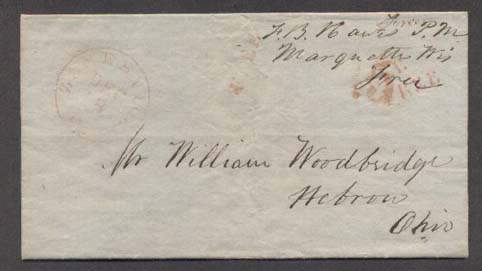 Free
F. B. Hawes P.M.
Marquette Wis
Free
Mr William Woodbridge
Hebron
Ohio